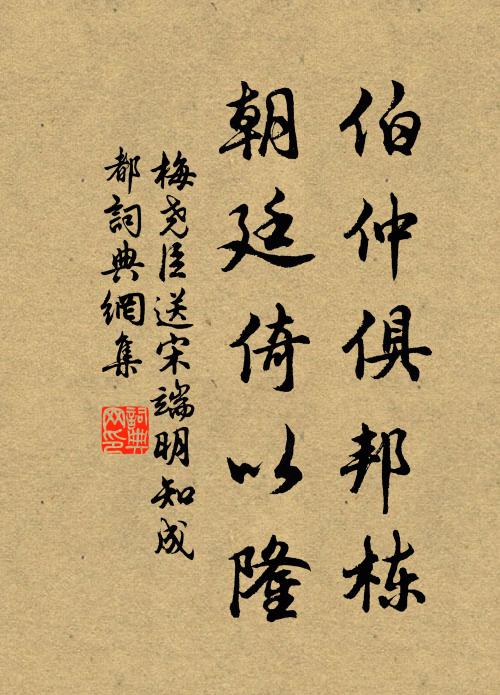 伯仲俱邦栋
朝廷倚以隆
梅尧臣送宋端明知成
都詞典網集
詞典網印